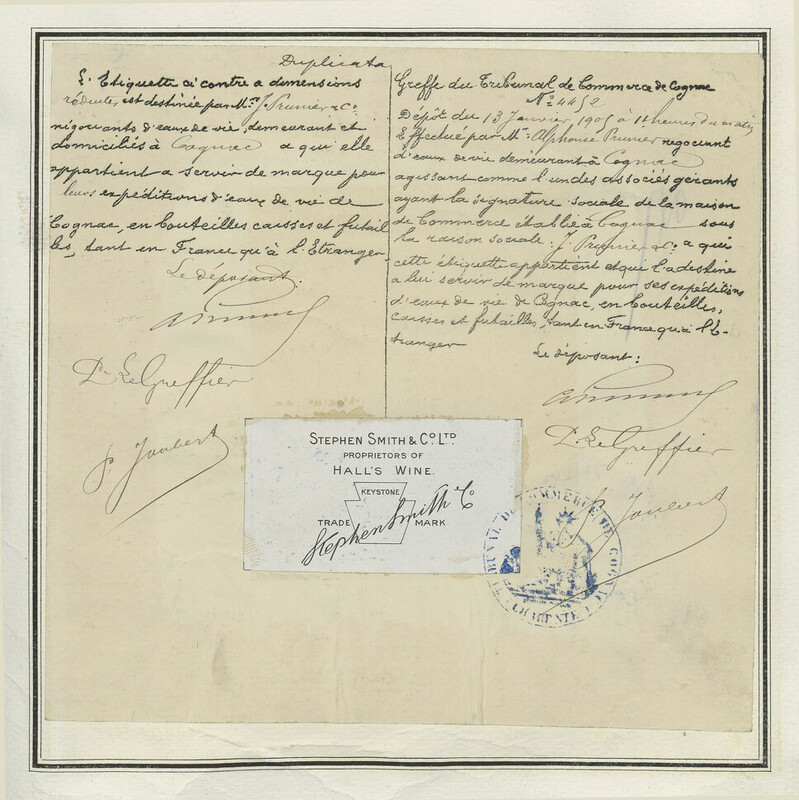 Duplicata
L'Etiquette ci contre a dimensions
réduites, est destinée par Mrs J. Prunier & Co
négociants d'eaux de vie, demeurant et
domiciliés à Cognac a qui elle
appartient a servir de marque pour
leurs expéditions d'eaux de vie de
Cognac, en bouteilles caisses et futail
les, tant en France qu'à l'Etranger
Le déposant:
Dr. Le Greffier
P. Joubert
Greffe du Tribunal de Commerce de Cognac
No 4452
Dépôt du 13 Janvier 1905 à 11 heures du matin
Effectué par Mr Alphonse Prunier négociant
d'eaux de vie demeurant à Cognac
agissant comme l'un des associés gérants
ayant la signature sociale de la maison
de Commerce établie à Cognac sous
la raison sociale: J. Prunier & Co a qui
cette étiquette appartient et qui l'a destine
a lui servir de marque pour ses expéditions
d'eaux de vie de Cognac, en bouteilles,
caisses et futailles, tant en France qu'à l'E-
tranger
Le déposant:
Dr. Le Greffier
P. Joubert
STEPHEN SMITH & CO LTD
PROPRIETORS OF
HALL'S WINE.
KEYSTONE
TRADE MARK
Stephen Smith & Co
TRIBUNAL DE COMMERCE DE COGNAC
CHARENTE